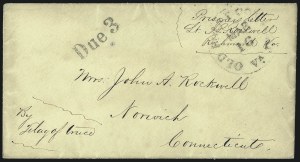 Prisoner's letter
Lt. A. P. Rockwell
Richmond Va.
Due 3
OLD
VA
16
Mrs. John A. Rockwell
Norwich
Connecticut.
By
Flag of truce